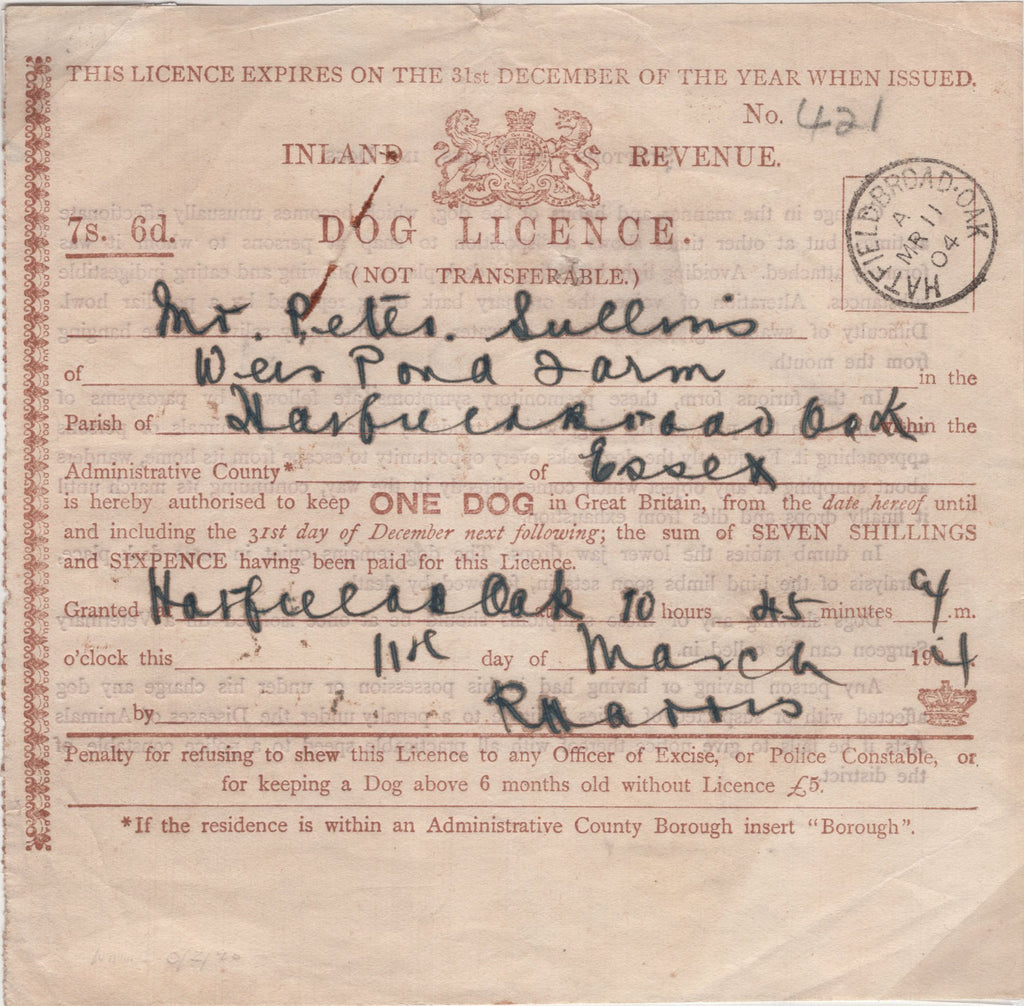 THIS LICENCE EXPIRES ON THE 31st DECEMBER OF THE YEAR WHEN ISSUED.
No. 421
INLAND REVENUE.
HATFIELD-BROAD-OAK
A
MR 11
04
7s. 6d. DOG LICENCE
(NOT TRANSFERABLE.)
Mr. Peter. Sullins
of Weir Pond Farm in the
Parish of Hatfield Broad Oak within the
Administrative County* of Essex
is hereby authorised to keep ONE DOG in Great Britain, from the date hereof until
and including the 31st day of December next following; the sum of SEVEN SHILLINGS
and SIXPENCE having been paid for this Licence.
Granted at Hatfield Oak 10 hours 45 minutes a.m.
o'clock this 11th day of March 1904
by R Harris
Penalty for refusing to shew this Licence to any Officer of Excise, or Police Constable, or
for keeping a Dog above 6 months old without Licence £5.
*If the residence is within an Administrative County Borough insert "Borough".